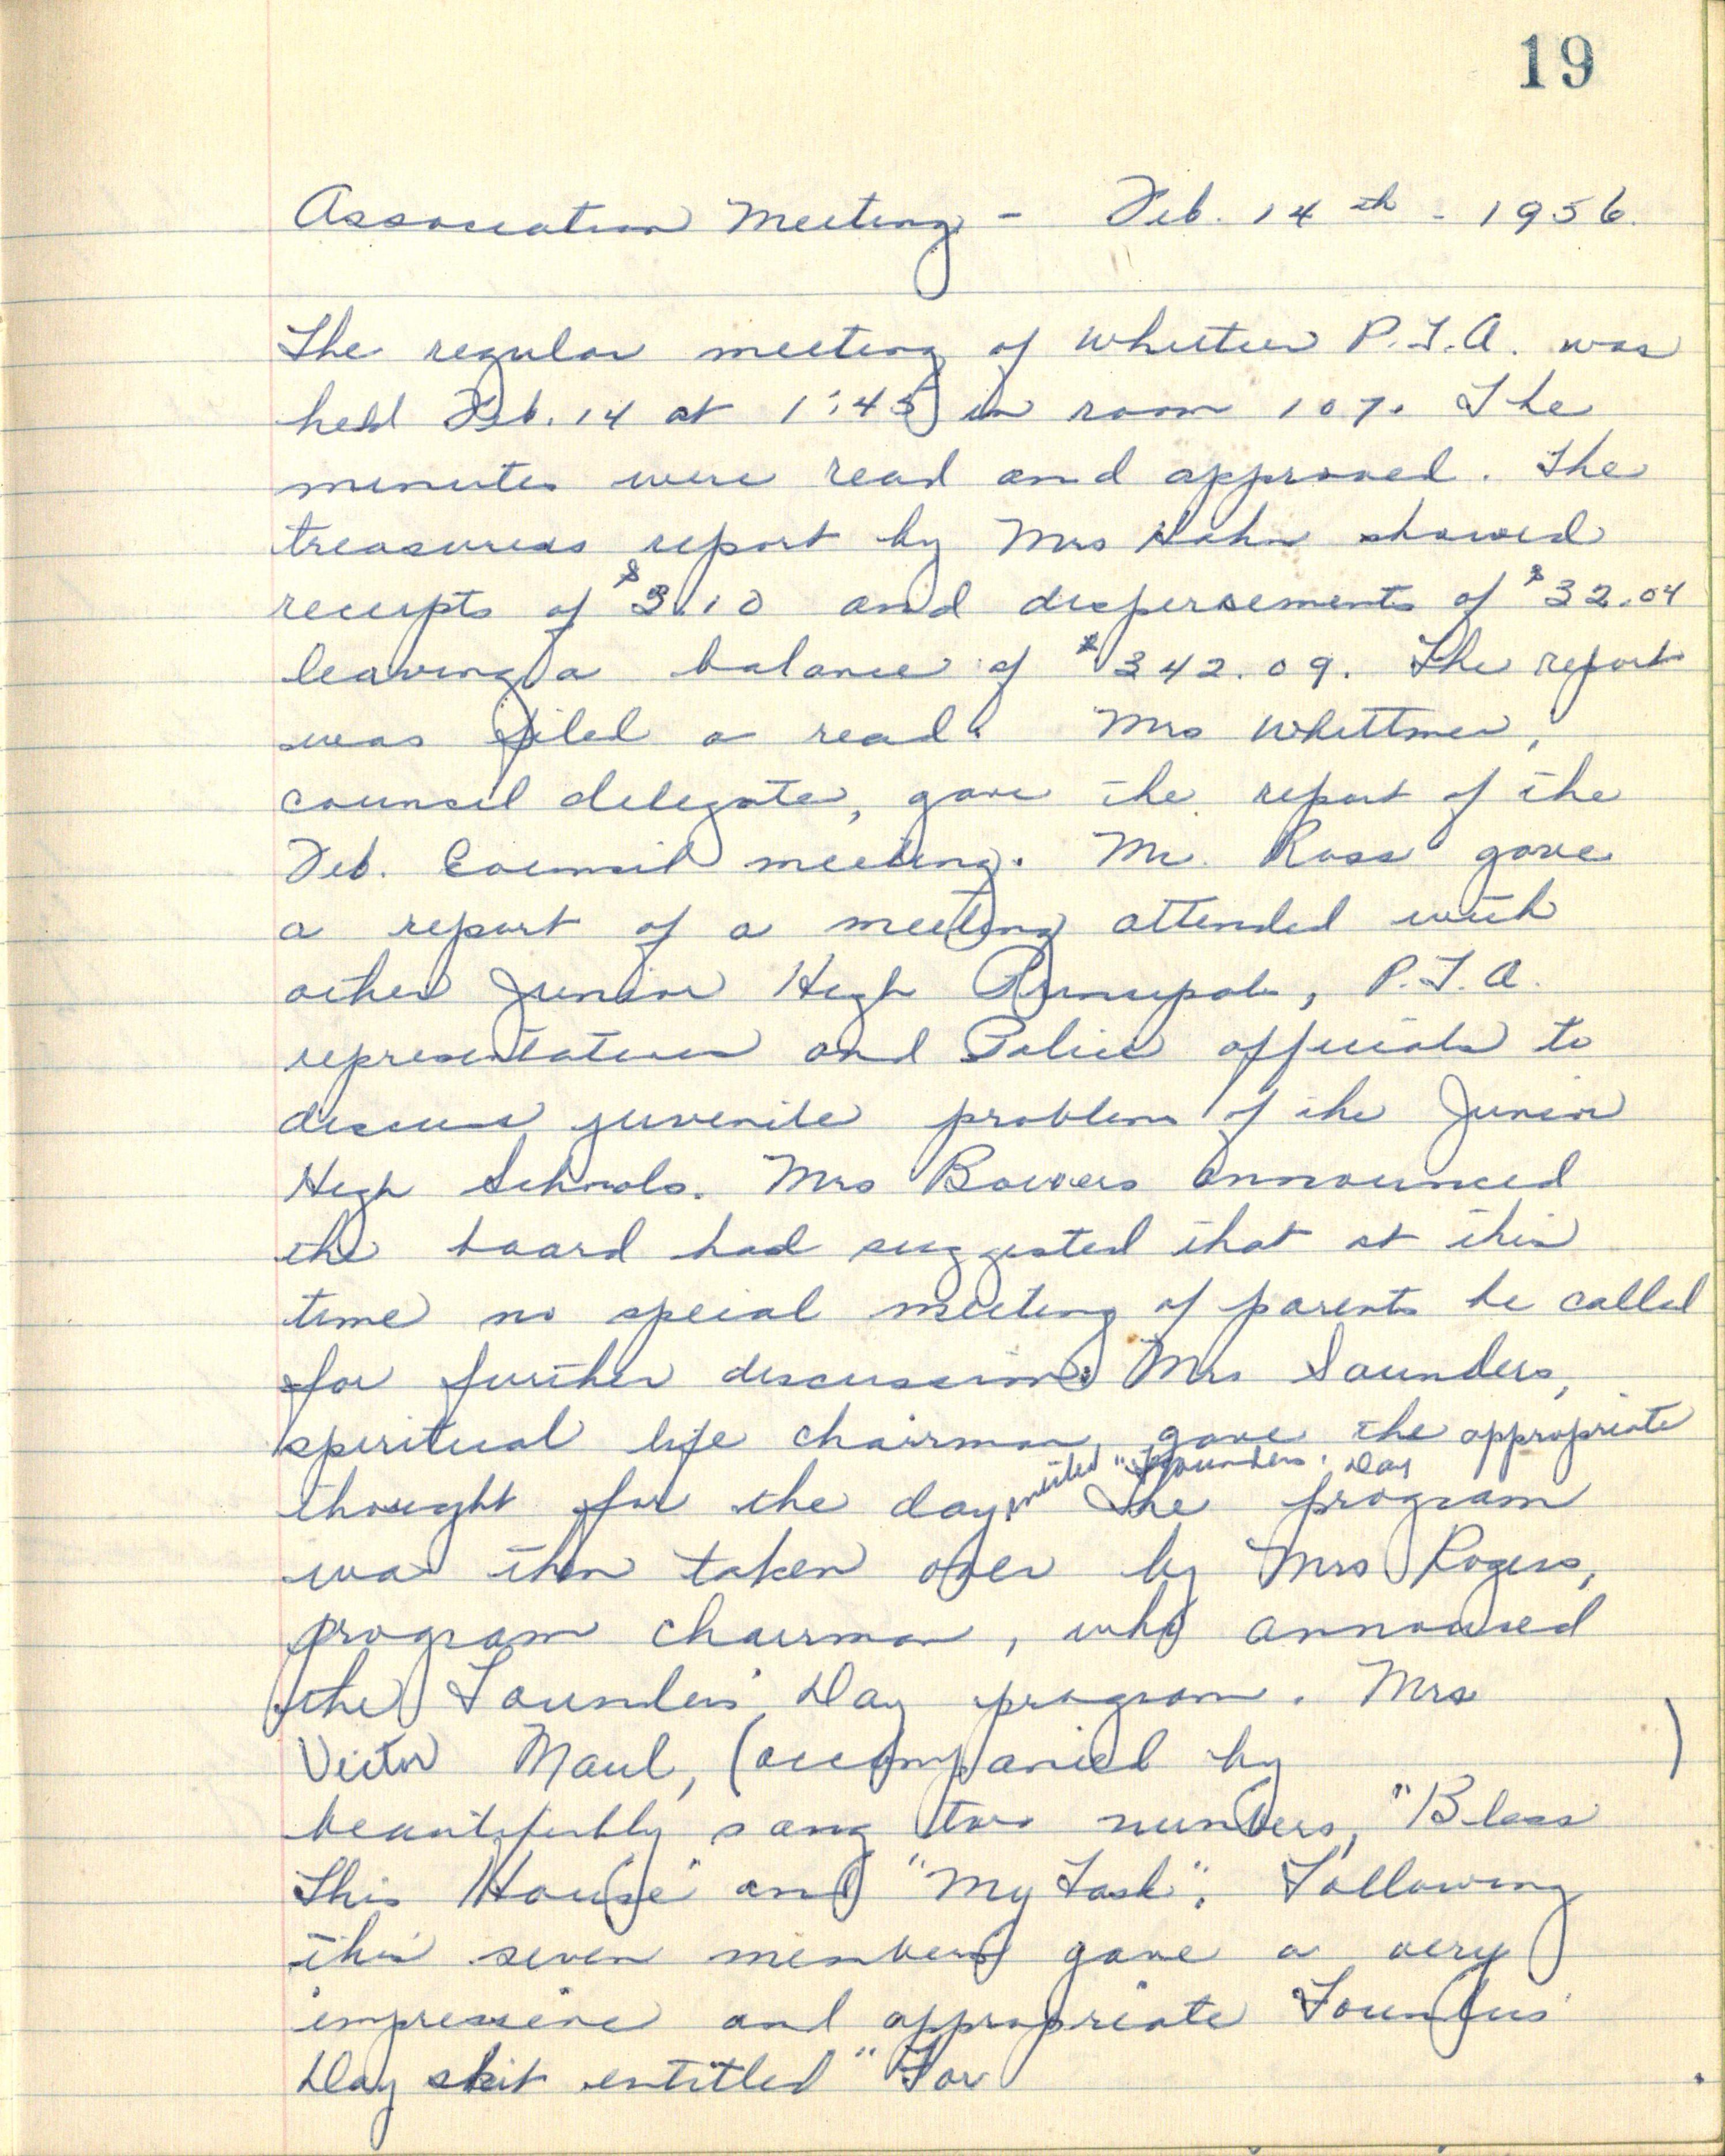 19
Association Meeting - Feb. 14th - 1956.
The regular meeting of Whittier P.T.A. was
held Feb. 14 at 1:45 in room 107. The
minutes were read and approved. The
treasurers report by Mrs Hahn showed
receipts of $3.10 and dispersements of $32.04
leaving a balance of $342.09. The report
was filed a read. Mrs Whittmer,
counsil delegate, gave the report of the
Feb. Council meeting. Mr. Ross gave
a report of a meeting attended with
other Junior High Principals, P.T.A.
representatives and Police officials to
discuss juvenile problems of the Junior
High Schools. Mrs Bowers announced
the board had suggested that at this
time no special meeting of parents be called
for further discussion. Mrs Saunders,
spiritual life chairman, gave the appropriate
entitled "Founders' Day
thought for the day. The program
was then taken over by Mrs Rogers,
program chairman, who announced
the Founders' Day program. Mrs
Victor Maul, (accompanied by )
beautifully sang two numbers, "Bless
This House" and "My Task". Following
this seven members gave a very
impressive and appropriate Founders'
Day skit entitled "For .